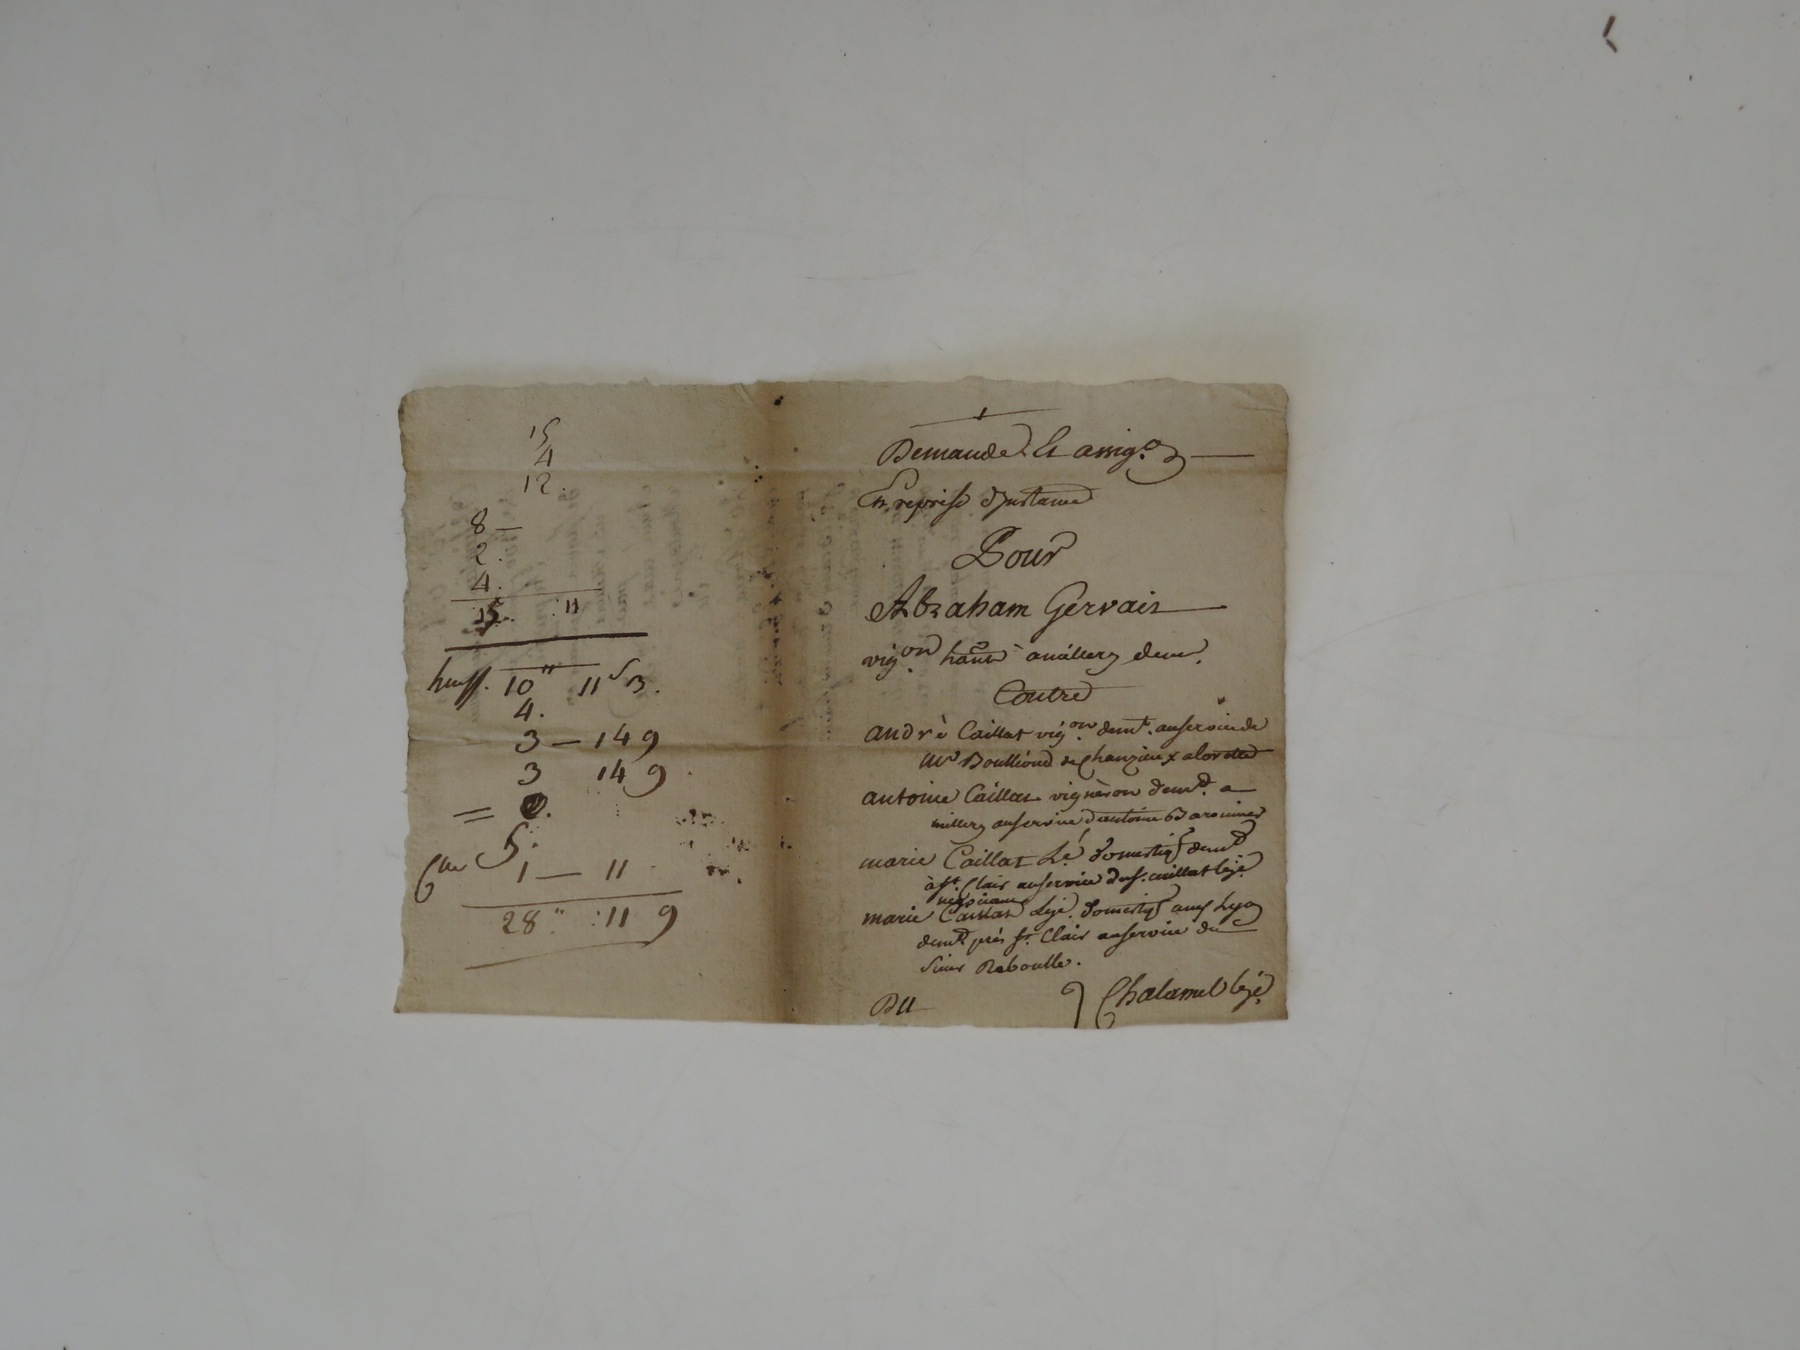 15
4
12.
8 —
2.
4.
15. :11
huiss. 10" 11 s 3.
4.
3 — 14 9
3 14 9
0.
5.
1 — 11
28" :11 9
Demande Et assig.on
En reprise d'instance
Pour
Abraham Gervais
vig.on hant a millery dem.
Contre
andrè Caillat vig.on demt. au service de
Mr Boullioud de Chanzieux a lorette
antoine Caillat vigneron demt. a
millery au service d'antoine
marie Caillat domestiq demt
à st. Clair au service du sr. Caillat lejé.
negociant
marie Caillat Leje. domestiq aussy Lyon
demt. près st. Clair au service du
sieur Reboulle.
Du
Chalamel lejé.